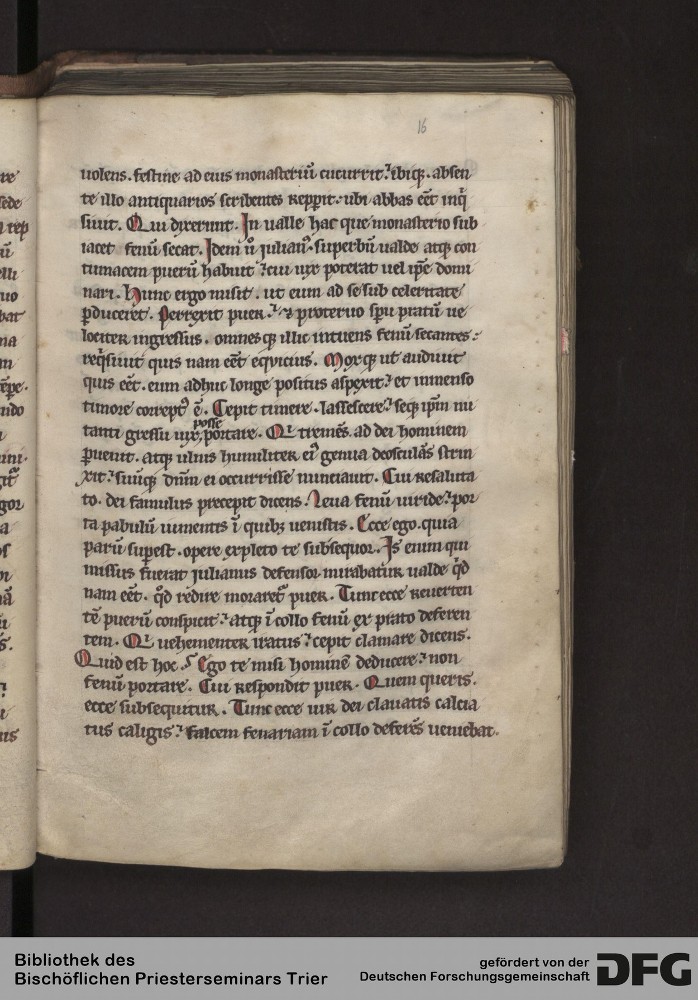 16
uolens. festine ad eius monasteriū cucurrit. ibiq;. absen
te illo antiquarios scribentes repperit. ubi abbas eēt inq̄
siuit. Qui dixerunt. In ualle hac que monasterio sub
iacet fenū secat. Idem ū iulianꝰ. superbū ualde atq; con
tumacem puerū habuit cui uix poterat uel ip̄e domi
nari. Hunc ergo misit. ut eum ad se sub celeritate
ꝑduceret. Perrexit puer. & proteruo sp̄u pratū ue
lociter ingressus. omnesq; illic intuens fenū secantes.
reqͥsiuit quis nam eēt eqvicius. Moxq; ut audiuit
quis eēt. eum adhuc longe positus aspexit. et inmenso
timore correptꝰ ē. Cepit timere. lassescere. seq; ip̄m nu
posse
tanti gressu uix portare. Qui tremēs. ad dei hominem
ꝑuenit. atq; ulnis humiliter eiꝰ genua deosculās strin
xit. suūq; dn̄m ei occurrisse nunciauit. Cui resaluta
to. dei famulus precepit dicens. Leua fenū uiride. por
ta pabulū iumentis ī quibꝫ uenistis. Ecce ego. quia
parū suꝑest. opere expleto te subsequor. Is enim qui
missus fuerat iulianus defensor mirabatur ualde qͦd
nam eēt. qͦd redire moraret᷑ puer. Tunc ecce reuerten
tē puerū conspicit. atq; ī collo fenū ex prato deferen
tem. Qui uehementer iratus. cepit clamare dicens.
Quid est hoc. Ego te misi hominē deducere. non
fenū portare. Cui respondit puer. Quem queris.
ecce subsequitur. Tunc ecce uir dei clauatis calcia
tus caligis. falcem fenariam ī collo deferēs ueniebat.
Bibliothek des
Bischöflichen Priesterseminars Trier
gefördert von der
Deutschen Forschungsgemeinschaft
DFG